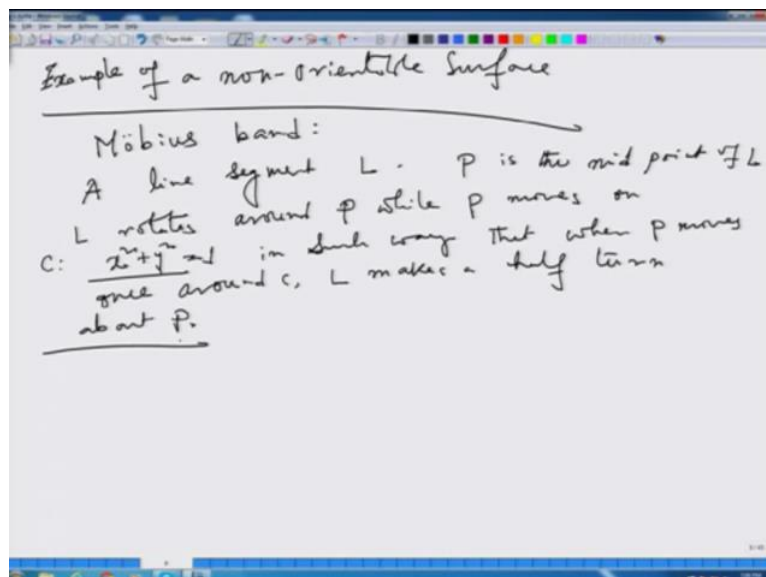 Example of a non-orientable Surface
Möbius band:
A line segment L. P is the mid point of L
L rotates around P while P moves on
C: x²+y²=1 in such way that when P moves
once around C, L makes a half turn
about P.